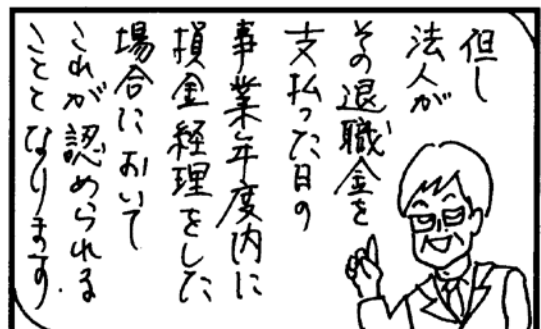 但し
法人が
その退職金を
支払った日の
事業年度内に
損金経理をした
場合において
これが認められる
こととなります.